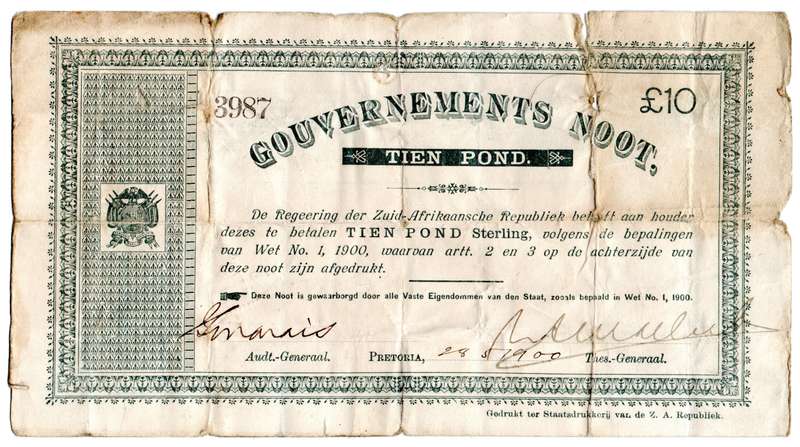 3987
£10
GOUVERNEMENTS NOOT.
TIEN POND.
De Regeering der Zuid-Afrikaansche Republiek belooft aan houder
dezes te betalen TIEN POND Sterling, volgens de bepalingen
van Wet No. 1, 1900, waarvan artt. 2 en 3 op de achterzijde van
deze noot zijn afgedrukt.
Deze Noot is gewaarborgd door alle Vaste Eigendommen van den Staat, zooals bepaald in Wet No. 1, 1900.
Marais
Audt.-Generaal. PRETORIA, 28 5 1900 Thes.-Generaal.
Gedrukt ter Staatsdrukkerij van de Z. A. Republiek.